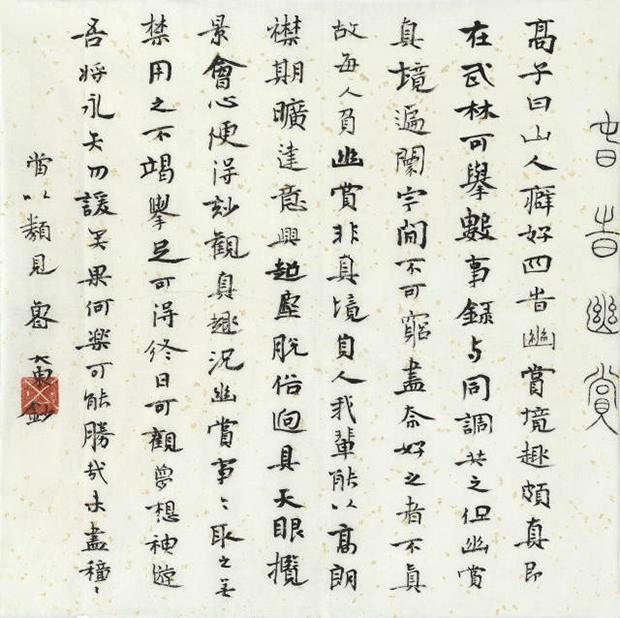 旾旹幽賞
高子曰山人癖好四旹幽賞境趣頗真即
在武林可舉數事錄与同調共之但幽賞
真境遍闤宇間不可窮盡奈好之者不真
故每人負幽賞非真境負人我輩能以高朗
襟期曠達意興超塵脫俗迥具天眼攬
景會心便得玅觀真趣況幽賞事〻取之无
禁用之不竭舉足可得終日可觀夢想神遊
吾將永矢勿諼矣果何樂可能勝哉未盡種〻
當以類見 魯大東鈔